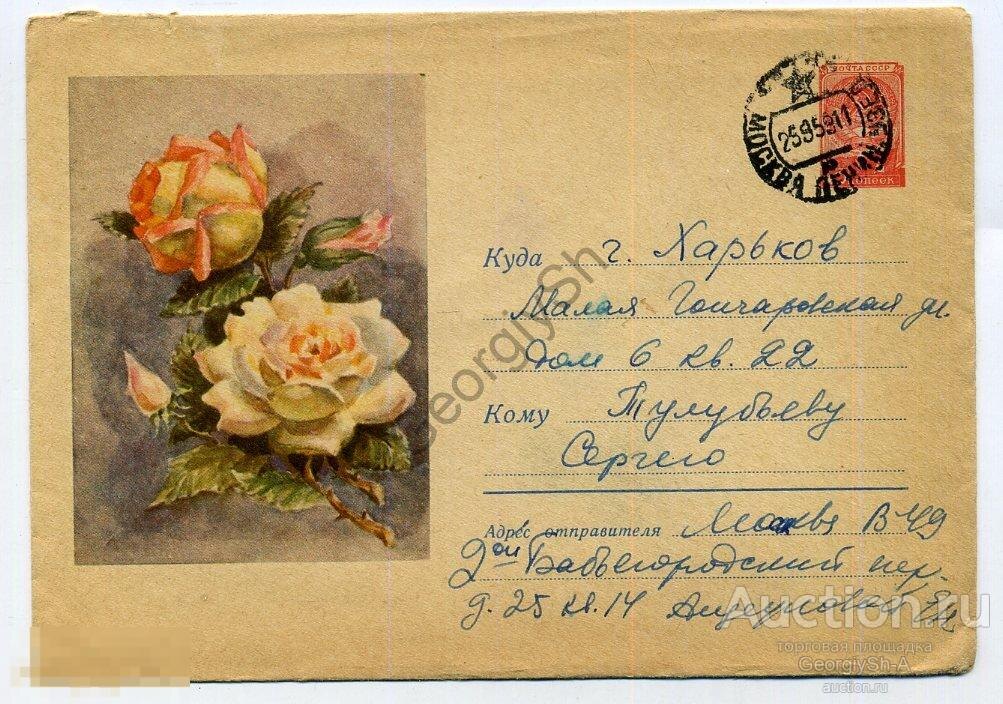 ПОЧТА СССР
КОПЕЕК
МОСКВА
2595911
Куда г. Харьков
Малая Гончаровская ул.
дом 6 кв. 22
Кому Тулубьеву
Сергею
Адрес отправителя Москва В-49
2ой Бабьегородский пер.
д. 25 кв. 14
GeorgiySh-A
Auction.ru
торговая площадка
GeorgiySh-A
auction.ru